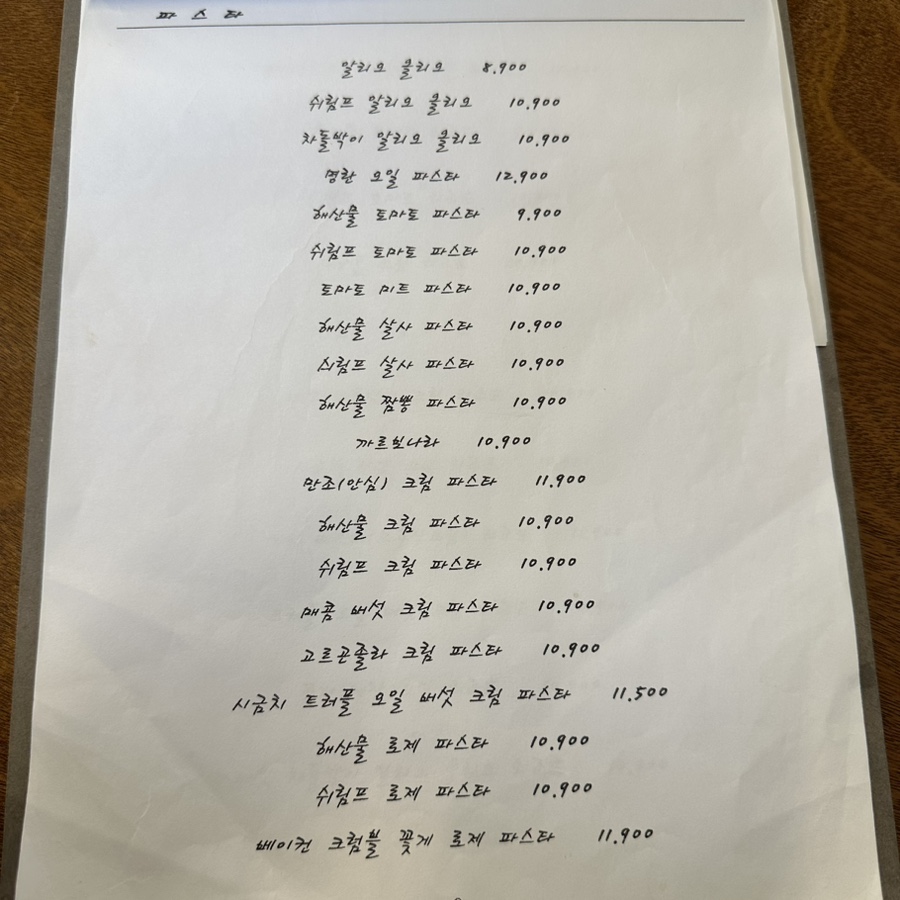 파스타
알리오 올리오 8.900
쉬림프 알리오 올리오 10.900
차돌박이 알리오 올리오 10.900
명란 오일 파스타 12.900
해산물 토마토 파스타 9.900
쉬림프 토마토 파스타 10.900
토마토 미트 파스타 10.900
해산물 살사 파스타 10.900
쉬림프 살사 파스타 10.900
해산물 짬뽕 파스타 10.900
까르보나라 10.900
만조(안심) 크림 파스타 11.900
해산물 크림 파스타 10.900
쉬림프 크림 파스타 10.900
매콤 버섯 크림 파스타 10.900
고르곤졸라 크림 파스타 10.900
시금치 트러플 오일 버섯 크림 파스타 11.500
해산물 로제 파스타 10.900
쉬림프 로제 파스타 10.900
베이컨 크럼블 꽃게 로제 파스타 11.900